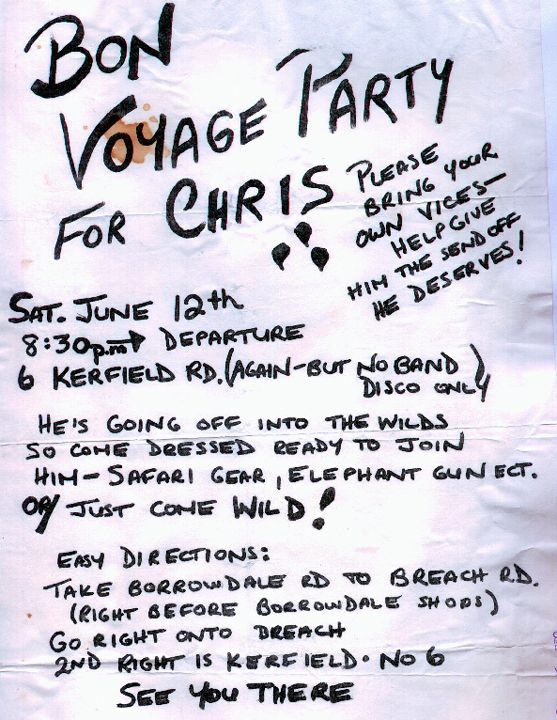 BON
VOYAGE PARTY
FOR CHRIS
PLEASE
BRING YOUR
OWN VICES—
HELP GIVE
HIM THE SEND OFF
HE DESERVES!
SAT. JUNE 12th
8:30p.m → DEPARTURE
6 KERFIELD RD. (AGAIN - BUT NO BAND
DISCO ONLY)
HE'S GOING OFF INTO THE WILDS
SO COME DRESSED READY TO JOIN
HIM - SAFARI GEAR, ELEPHANT GUN ECT.
OR/ JUST COME WILD!
EASY DIRECTIONS:
TAKE BORROWDALE RD TO BREACH RD.
(RIGHT BEFORE BORROWDALE SHOPS)
GO RIGHT ONTO BREACH
2ND RIGHT IS KERFIELD. NO 6
SEE YOU THERE